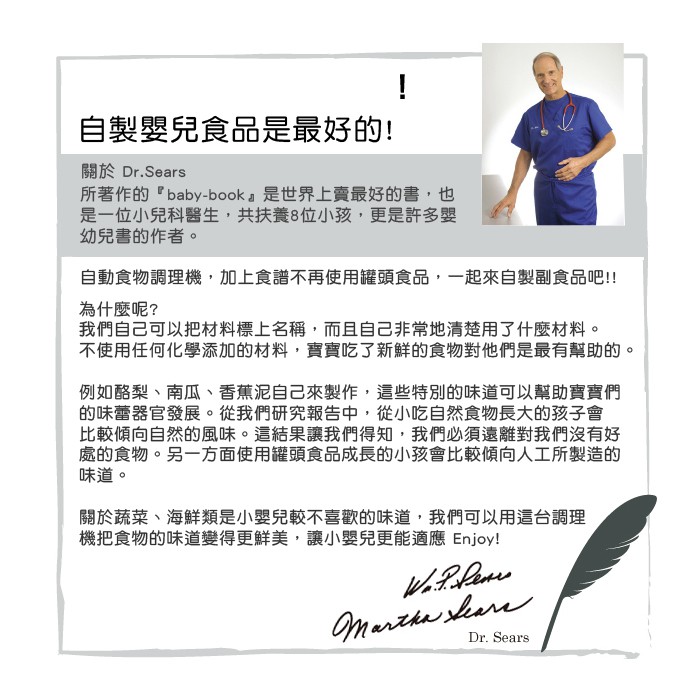 !
自製嬰兒食品是最好的!
關於 Dr.Sears
所著作的『baby-book』是世界上賣最好的書，也
是一位小兒科醫生，共扶養8位小孩，更是許多嬰
幼兒書的作者。
自動食物調理機，加上食譜不再使用罐頭食品，一起來自製副食品吧!!
為什麼呢?
我們自己可以把材料標上名稱，而且自己非常地清楚用了什麼材料。
不使用任何化學添加的材料，寶寶吃了新鮮的食物對他們是最有幫助的。
例如酪梨、南瓜、香蕉泥自己來製作，這些特別的味道可以幫助寶寶們
的味蕾器官發展。從我們研究報告中，從小吃自然食物長大的孩子會
比較傾向自然的風味。這結果讓我們得知，我們必須遠離對我們沒有好
處的食物。另一方面使用罐頭食品成長的小孩會比較傾向人工所製造的
味道。
關於蔬菜、海鮮類是小嬰兒較不喜歡的味道，我們可以用這台調理
機把食物的味道變得更鮮美，讓小嬰兒更能適應 Enjoy!
Wm.P.Sears
Martha Sears
Dr. Sears